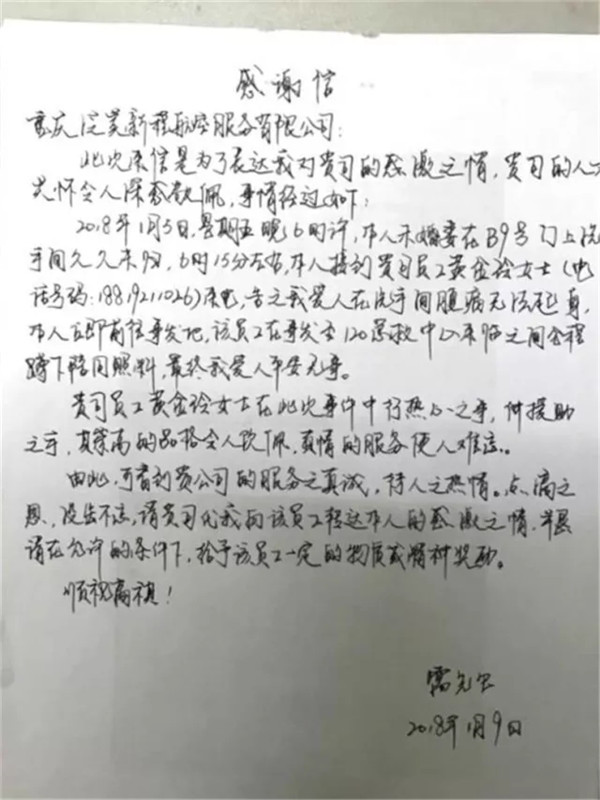 感谢信
重庆汉莎新程航空服务有限公司:
此次来信是为了表达我对贵司的感激之情,贵司的人文
关怀令人深感钦佩,事情经过如下:
2018年1月5日,星期五晚6时许,本人未婚妻在B9号门上洗
手间久久未归,6时15分左右,本人接到贵司员工黄金玲女士(电
话号码:18819211026)来电,告之我爱人在洗手间腹痛无法起身,
本人立即前往事发地,该员工在事发至120急救中心来临之间全程
蹲下陪同照料,最终我爱人平安无事。
贵司员工黄金玲女士在此次事件中行热心之事,伸援助
之手,其崇高的品格令人钦佩,真情的服务使人难忘。
由此,可看到贵公司的服务之真诚,待人之热情。点滴之
恩,没齿不忘,请贵司代我向该员工转达本人的感激之情,并恳
请在允许的条件下,给予该员工一定的物质或精神奖励。
顺祝商祺!
2018年1月9日